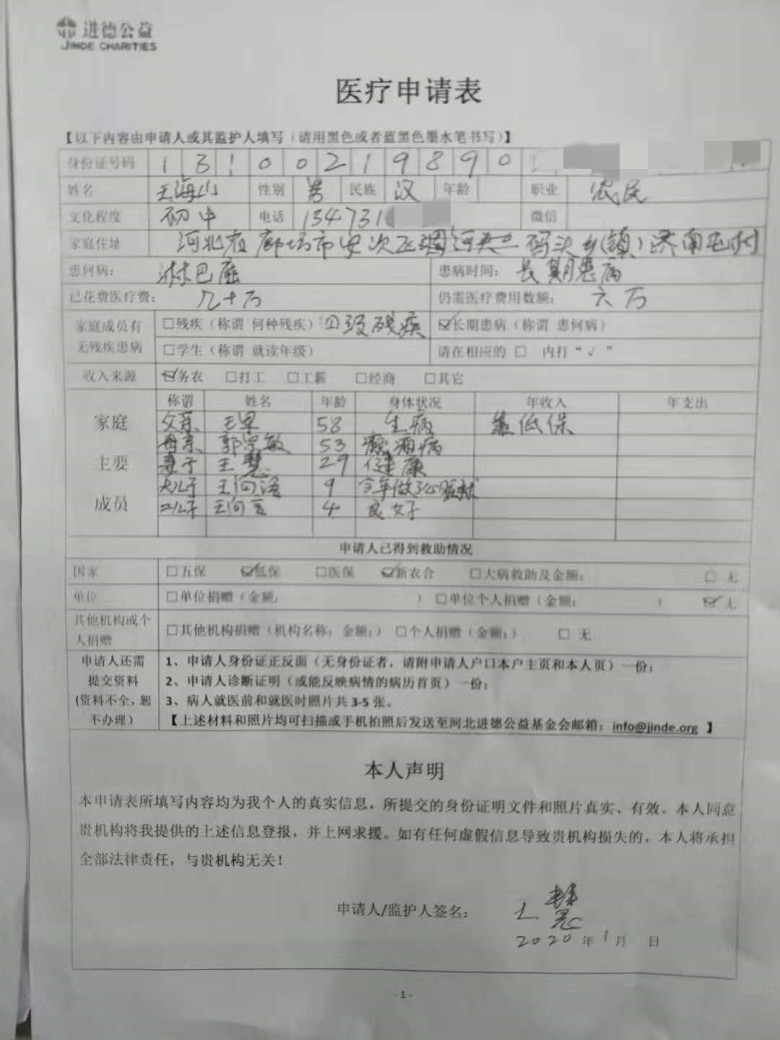 进德公益
JINDE CHARITIES
医疗申请表
【以下内容由申请人或其监护人填写(请用黑色或者蓝黑色墨水笔书写)】
身份证号码 1 3 1 0 0 2 1 9 8 9 0
姓名 王海山 性别 男 民族 汉 年龄 职业 农民
文化程度 初中 电话 134731 微信
家庭住址 河北省廊坊市安次区调河头 码头乡(镇)济南屯村
患何病: 淋巴 患病时间: 长期患病
已花费医疗费: 几十万 仍需医疗费用数额: 六万
家庭成员有无残疾患病 □残疾(称谓 何种残疾)四级残疾 ☑长期患病(称谓 患何病)
□学生(称谓 就读年级) 请在相应的 □ 内打“√”
收入来源 ☑务农 □打工 □工薪 □经商 □其它
家庭主要成员 称谓 姓名 年龄 身体状况 年收入 年支出
父亲 王军 58 生病 低保
母亲 郭 敏 53 癫痫病
妻子 王慧 29 健康
大儿子 王向 9 今年做了心脏
二儿子 王向 4 良好
申请人已得到救助情况
国家 □五保 ☑低保 □医保 ☑新农合 □大病救助及金额: □ 无
单位 □单位捐赠(金额: ) □单位个人捐赠(金额: ) ☑无
其他机构或个人捐赠 □其他机构捐赠(机构名称:金额:) □个人捐赠(金额:) □ 无
申请人还需提交资料(资料不全,恕不办理) 1、申请人身份证正反面(无身份证者,请附申请人户口本户主页和本人页)一份;
2、申请人诊断证明(或能反映病情的病历首页)一份;
3、病人就医前和就医时照片共 3-5 张。
【上述材料和照片均可扫描或手机拍照后发送至河北进德公益基金会邮箱:info@jinde.org 】
本人声明
本申请表所填写内容均为我个人的真实信息,所提交的身份证明文件和照片真实、有效。本人同意
贵机构将我提供的上述信息登报,并上网求援。如有任何虚假信息导致贵机构损失的,本人将承担
全部法律责任,与贵机构无关!
申请人/监护人签名: 王慧
2020 年 1 月 日
- 1 -